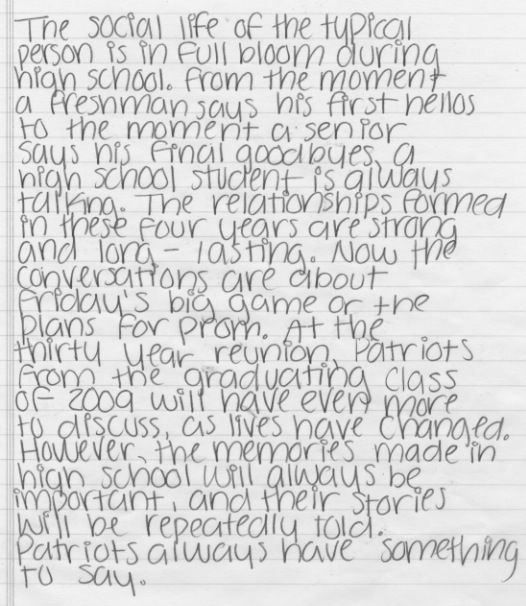 The social life of the typical
person is in full bloom during
high school. From the moment
a freshman says his first hellos
to the moment a senior
says his final goodbyes, a
high school student is always
talking. The relationships formed
in these four years are strong
and long-lasting. Now the
conversations are about
Friday's big game or the
plans for prom. At the
thirty year reunion, Patriots
from the graduating class
of 2009 will have even more
to discuss, as lives have changed.
However, the memories made in
high school will always be
important, and their stories
will be repeatedly told.
Patriots always have something
to say.